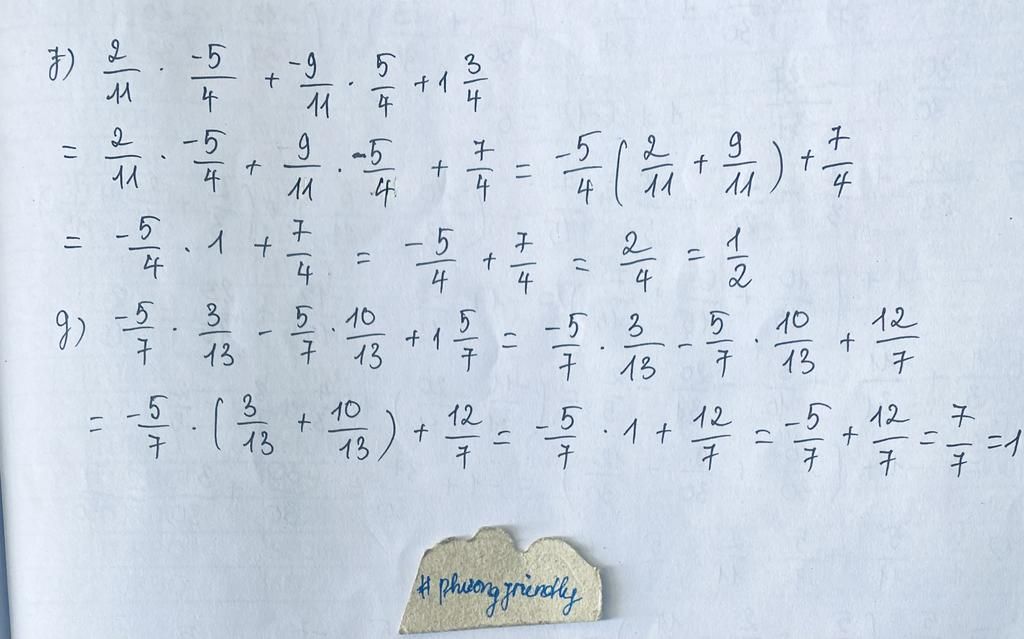 f) 2/11 · -5/4 + -9/11 · 5/4 + 1 3/4
= 2/11 · -5/4 + 9/11 · -5/4 + 7/4 = -5/4 ( 2/11 + 9/11 ) + 7/4
= -5/4 · 1 + 7/4 = -5/4 + 7/4 = 2/4 = 1/2
g) -5/7 · 3/13 - 5/7 · 10/13 + 1 5/7 = -5/7 · 3/13 - 5/7 · 10/13 + 12/7
= -5/7 · ( 3/13 + 10/13 ) + 12/7 = -5/7 · 1 + 12/7 = -5/7 + 12/7 = 7/7 = 1
# phuongfriendly